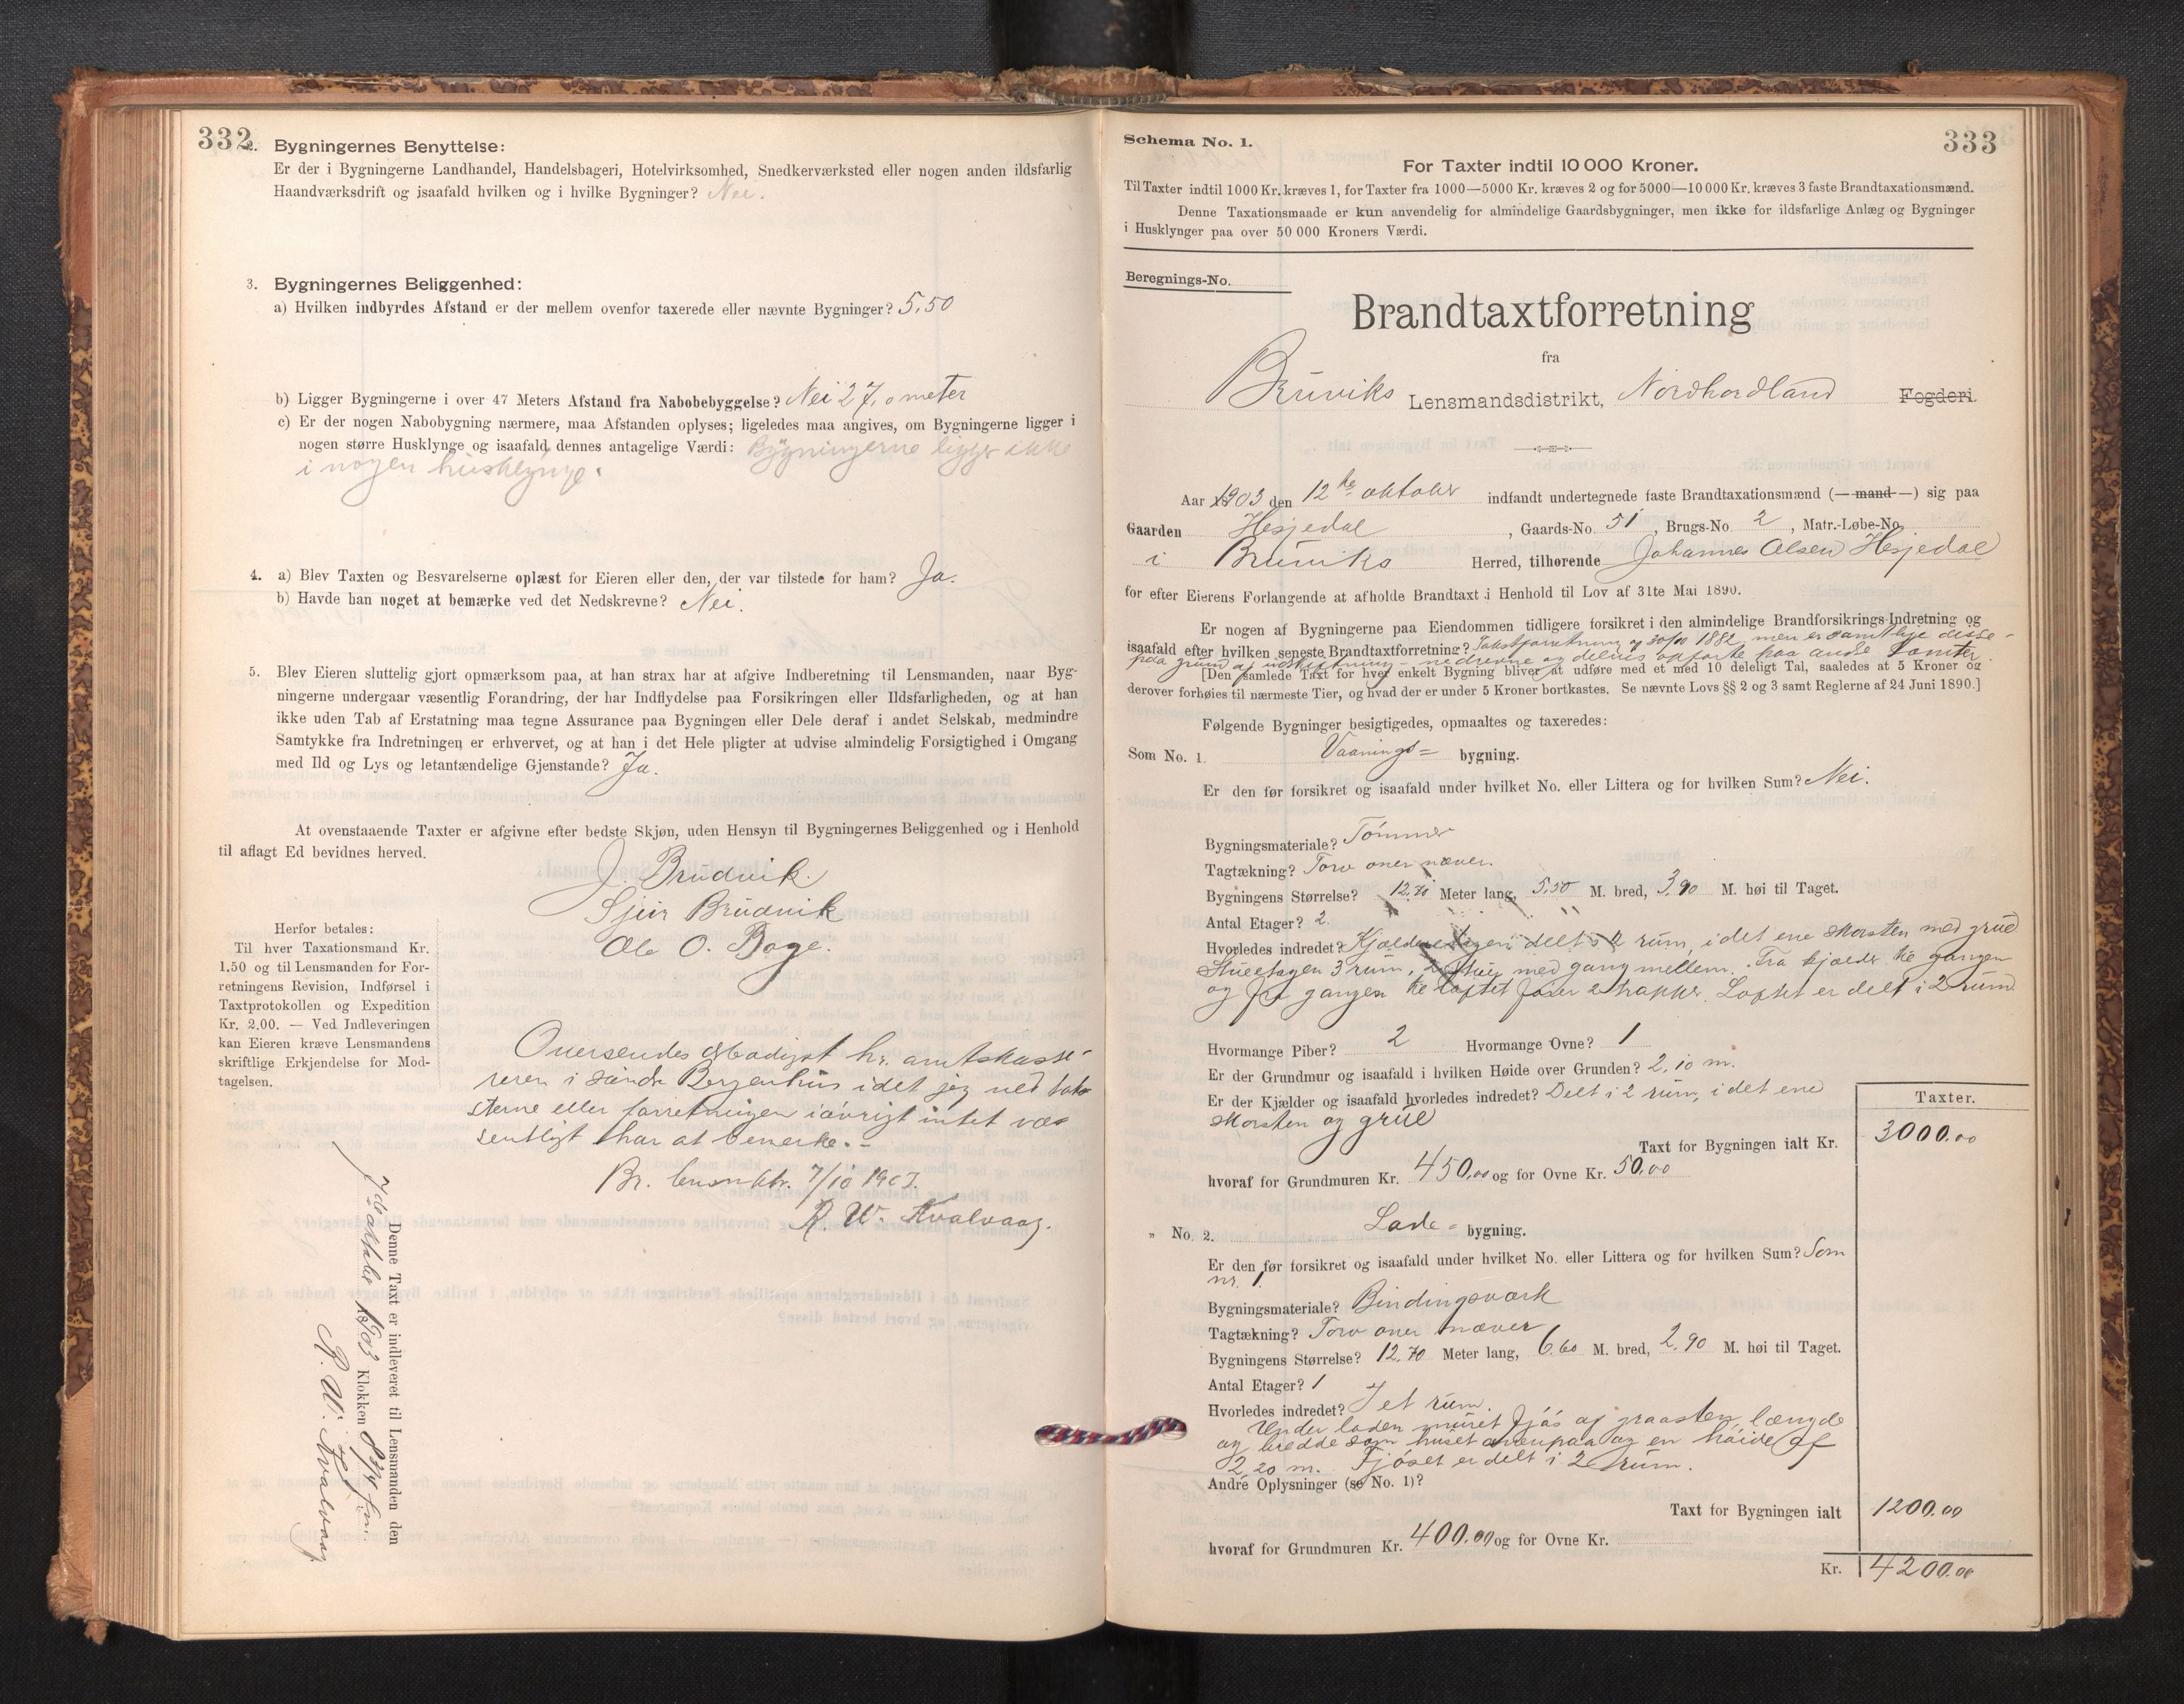 332
2. Bygningernes Benyttelse:
Er der i Bygningerne Landhandel, Handelsbageri, Hotelvirksomhed, Snedkerværksted eller nogen anden ildsfarlig
Haandværksdrift og isaafald hvilken og i hvilke Bygninger? Nei.
3. Bygningernes Beliggenhed:
a) Hvilken indbyrdes Afstand er der mellem ovenfor taxerede eller nævnte Bygninger? 5,50
b) Ligger Bygningerne i over 47 Meters Afstand fra Nabobebyggelse? Nei 27,0 meter
c) Er der nogen Nabobygning nærmere, maa Afstanden oplyses; ligeledes maa angives, om Bygningerne ligger i
nogen større Husklynge og isaafald dennes antagelige Værdi: Bygningerne ligger ikke
i nogen husklynge.
4. a) Blev Taxten og Besvarelserne oplæst for Eieren eller den, der var tilstede for ham? Ja.
b) Havde han noget at bemærke ved det Nedskrevne? Nei.
5. Blev Eieren sluttelig gjort opmærksom paa, at han strax har at afgive Indberetning til Lensmanden, naar Byg-
ningerne undergaar væsentlig Forandring, der har Indflydelse paa Forsikringen eller Ildsfarligheden, og at han
ikke uden Tab af Erstatning maa tegne Assurance paa Bygningen eller Dele deraf i andet Selskab, medmindre
Samtykke fra Indretningen er erhvervet, og at han i det Hele pligter at udvise almindelig Forsigtighed i Omgang
med Ild og Lys og letantændelige Gjenstande? Ja.
At ovenstaaende Taxter er afgivne efter bedste Skjøn, uden Hensyn til Bygningernes Beliggenhed og i Henhold
til aflagt Ed bevidnes herved.
J. Brudvik.
Sjur Brudvik
Ole O. Boge.
Herfor betales:
Til hver Taxationsmand Kr.
1.50 og til Lensmanden for For-
retningens Revision, Indførsel i
Taxtprotokollen og Expedition
Kr. 2.00. — Ved Indleveringen
kan Eieren kræve Lensmandens
skriftlige Erkjendelse for Mod-
tagelsen.
Oversendes ærbødigst hr. amtskasse-
reren i søndre Bergenhus idet jeg ved tak-
sterne eller forretningen iøvrigt intet væ-
sentligt har at bemerke.-
Br. 7/10 1903.
R. W. Kvalvaag.
Denne Taxt er indleveret til Lensmanden den
7de oktober 1903 Klokken
R. W. Kvalvaag
333
Schema No. 1.
For Taxter indtil 10 000 Kroner.
Til Taxter indtil 1000 Kr. kræves 1, for Taxter fra 1000—5000 Kr. kræves 2 og for 5000—10 000 Kr. kræves 3 faste Brandtaxationsmænd.
Denne Taxationsmaade er kun anvendelig for almindelige Gaardsbygninger, men ikke for ildsfarlige Anlæg og Bygninger
i Husklynger paa over 50 000 Kroners Værdi.
Beregnings-No.
Brandtaxtforretning
fra
Bruviks Lensmandsdistrikt, Nordhordland Fogderi.
Aar 1903 den 12te oktober indfandt undertegnede faste Brandtaxationsmænd (—mand—) sig paa
Gaarden Hesjedal, Gaards-No. 51, Brugs-No. 2, Matr.-Løbe-No.
i Bruviks Herred, tilhørende Johannes Olsen Hesjedal
for efter Eierens Forlangende at afholde Brandtaxt i Henhold til Lov af 31te Mai 1890.
Er nogen af Bygningerne paa Eiendommen tidligere forsikret i den almindelige Brandforsikrings-Indretning og
isaafald efter hvilken seneste Brandtaxtforretning? Takstforretning af 30/10 1882, men er samtlige disse-
paa grund af udskiftning - nedrevne og delvis opførte paa andre tomter.
[Den samlede Taxt for hver enkelt Bygning bliver at udføre med et med 10 deleligt Tal, saaledes at 5 Kroner og
derover forhøies til nærmeste Tier, og hvad der er under 5 Kroner bortkastes. Se nævnte Lovs §§ 2 og 3 samt Reglerne af 24 Juni 1890.]
Følgende Bygninger besigtigedes, opmaaltes og taxeredes:
Som No. 1. Vaanings= bygning.
Er den før forsikret og isaafald under hvilket No. eller Littera og for hvilken Sum? Nei.
Bygningsmateriale? Tømmer
Tagtækning? Torv over næver.
Bygningens Størrelse? 12,70 Meter lang, 5,50 M. bred, 3,90 M. høi til Taget.
Antal Etager? 2.
Hvorledes indredet? Kjælderetagen delt i 2 rum, i det ene skorsten med grue
Stueetagen 3 rum, 2 stuer med gang mellem. Fra kjælder til gangen
og fra gangen til loftet fører 2 trapper. Loftet er delt i 2 rum
Hvormange Piber? 2 Hvormange Ovne? 1
Er der Grundmur og isaafald i hvilken Høide over Grunden? 2,10 m.
Er der Kjælder og isaafald hvorledes indredet? Delt i 2 rum, i det ene
skorsten og grue
Taxter.
Taxt for Bygningen ialt Kr. 3000.00
hvoraf for Grundmuren Kr. 450,00 og for Ovne Kr. 50,00
" No. 2. Lade- bygning.
Er den før forsikret og isaafald under hvilket No. eller Littera og for hvilken Sum? Som
nr. 1.
Bygningsmateriale? Bindingsværk
Tagtækning? Torv over næver
Bygningens Størrelse? 12,70 Meter lang, 6.60 M. bred, 2,90 M. høi til Taget.
Antal Etager? 1
Hvorledes indredet? I et rum.
Under laden muret fjøs af graasten, længde
og bredde som huset ovenpaa og en høide af
2,20 m. Fjøset er delt i 2 rum.
Andre Oplysninger (se No. 1)?
Taxt for Bygningen ialt 1200.00
hvoraf for Grundmuren Kr. 400.00 og for Ovne Kr.
Kr. 4200.00